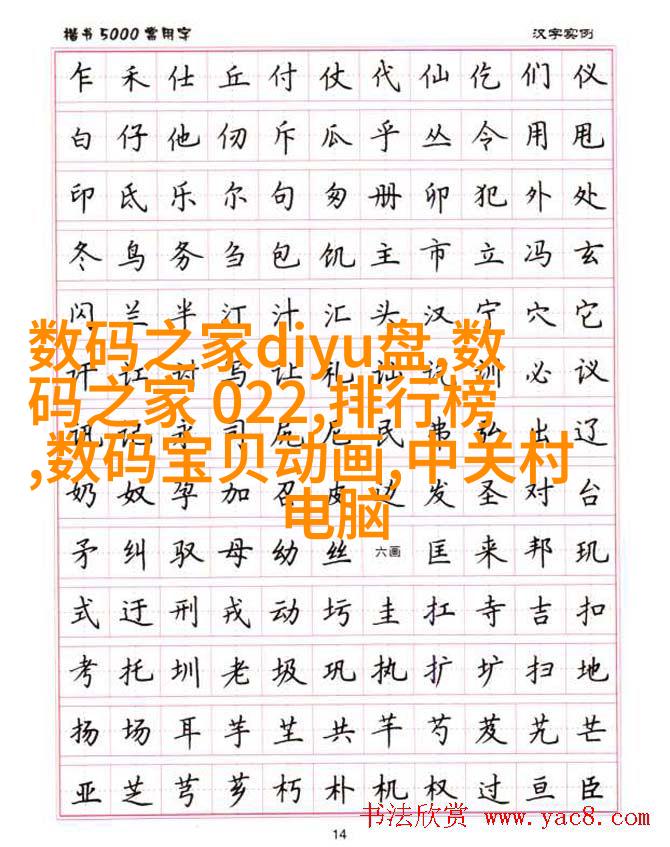 楷书5000常用字
汉字实例
乍禾仕丘付仗代仙仡们仪
白仔他仞斥瓜乎丛令用甩
印氐乐尔句匆册卯犯外处
冬鸟务刍包饥主市立冯玄
闪兰半汀汁汇头汉宁穴它
数码之家diyu盘,数
必议
码之家 022,排行榜
出辽
,数码宝贝动画,中关村
奶奴孕加召皮边发圣对台
电脑
矛纠驭母幼丝六画匡来邦玑
式迂刑戎动圬圭扛寺吉扣
考托圳老圾巩执扩圹扫地
扬场耳芋芏共芊芍芨艽芒
亚芝芎芗朽朴机权过亘臣
书法欣赏 www.yac8.com
14